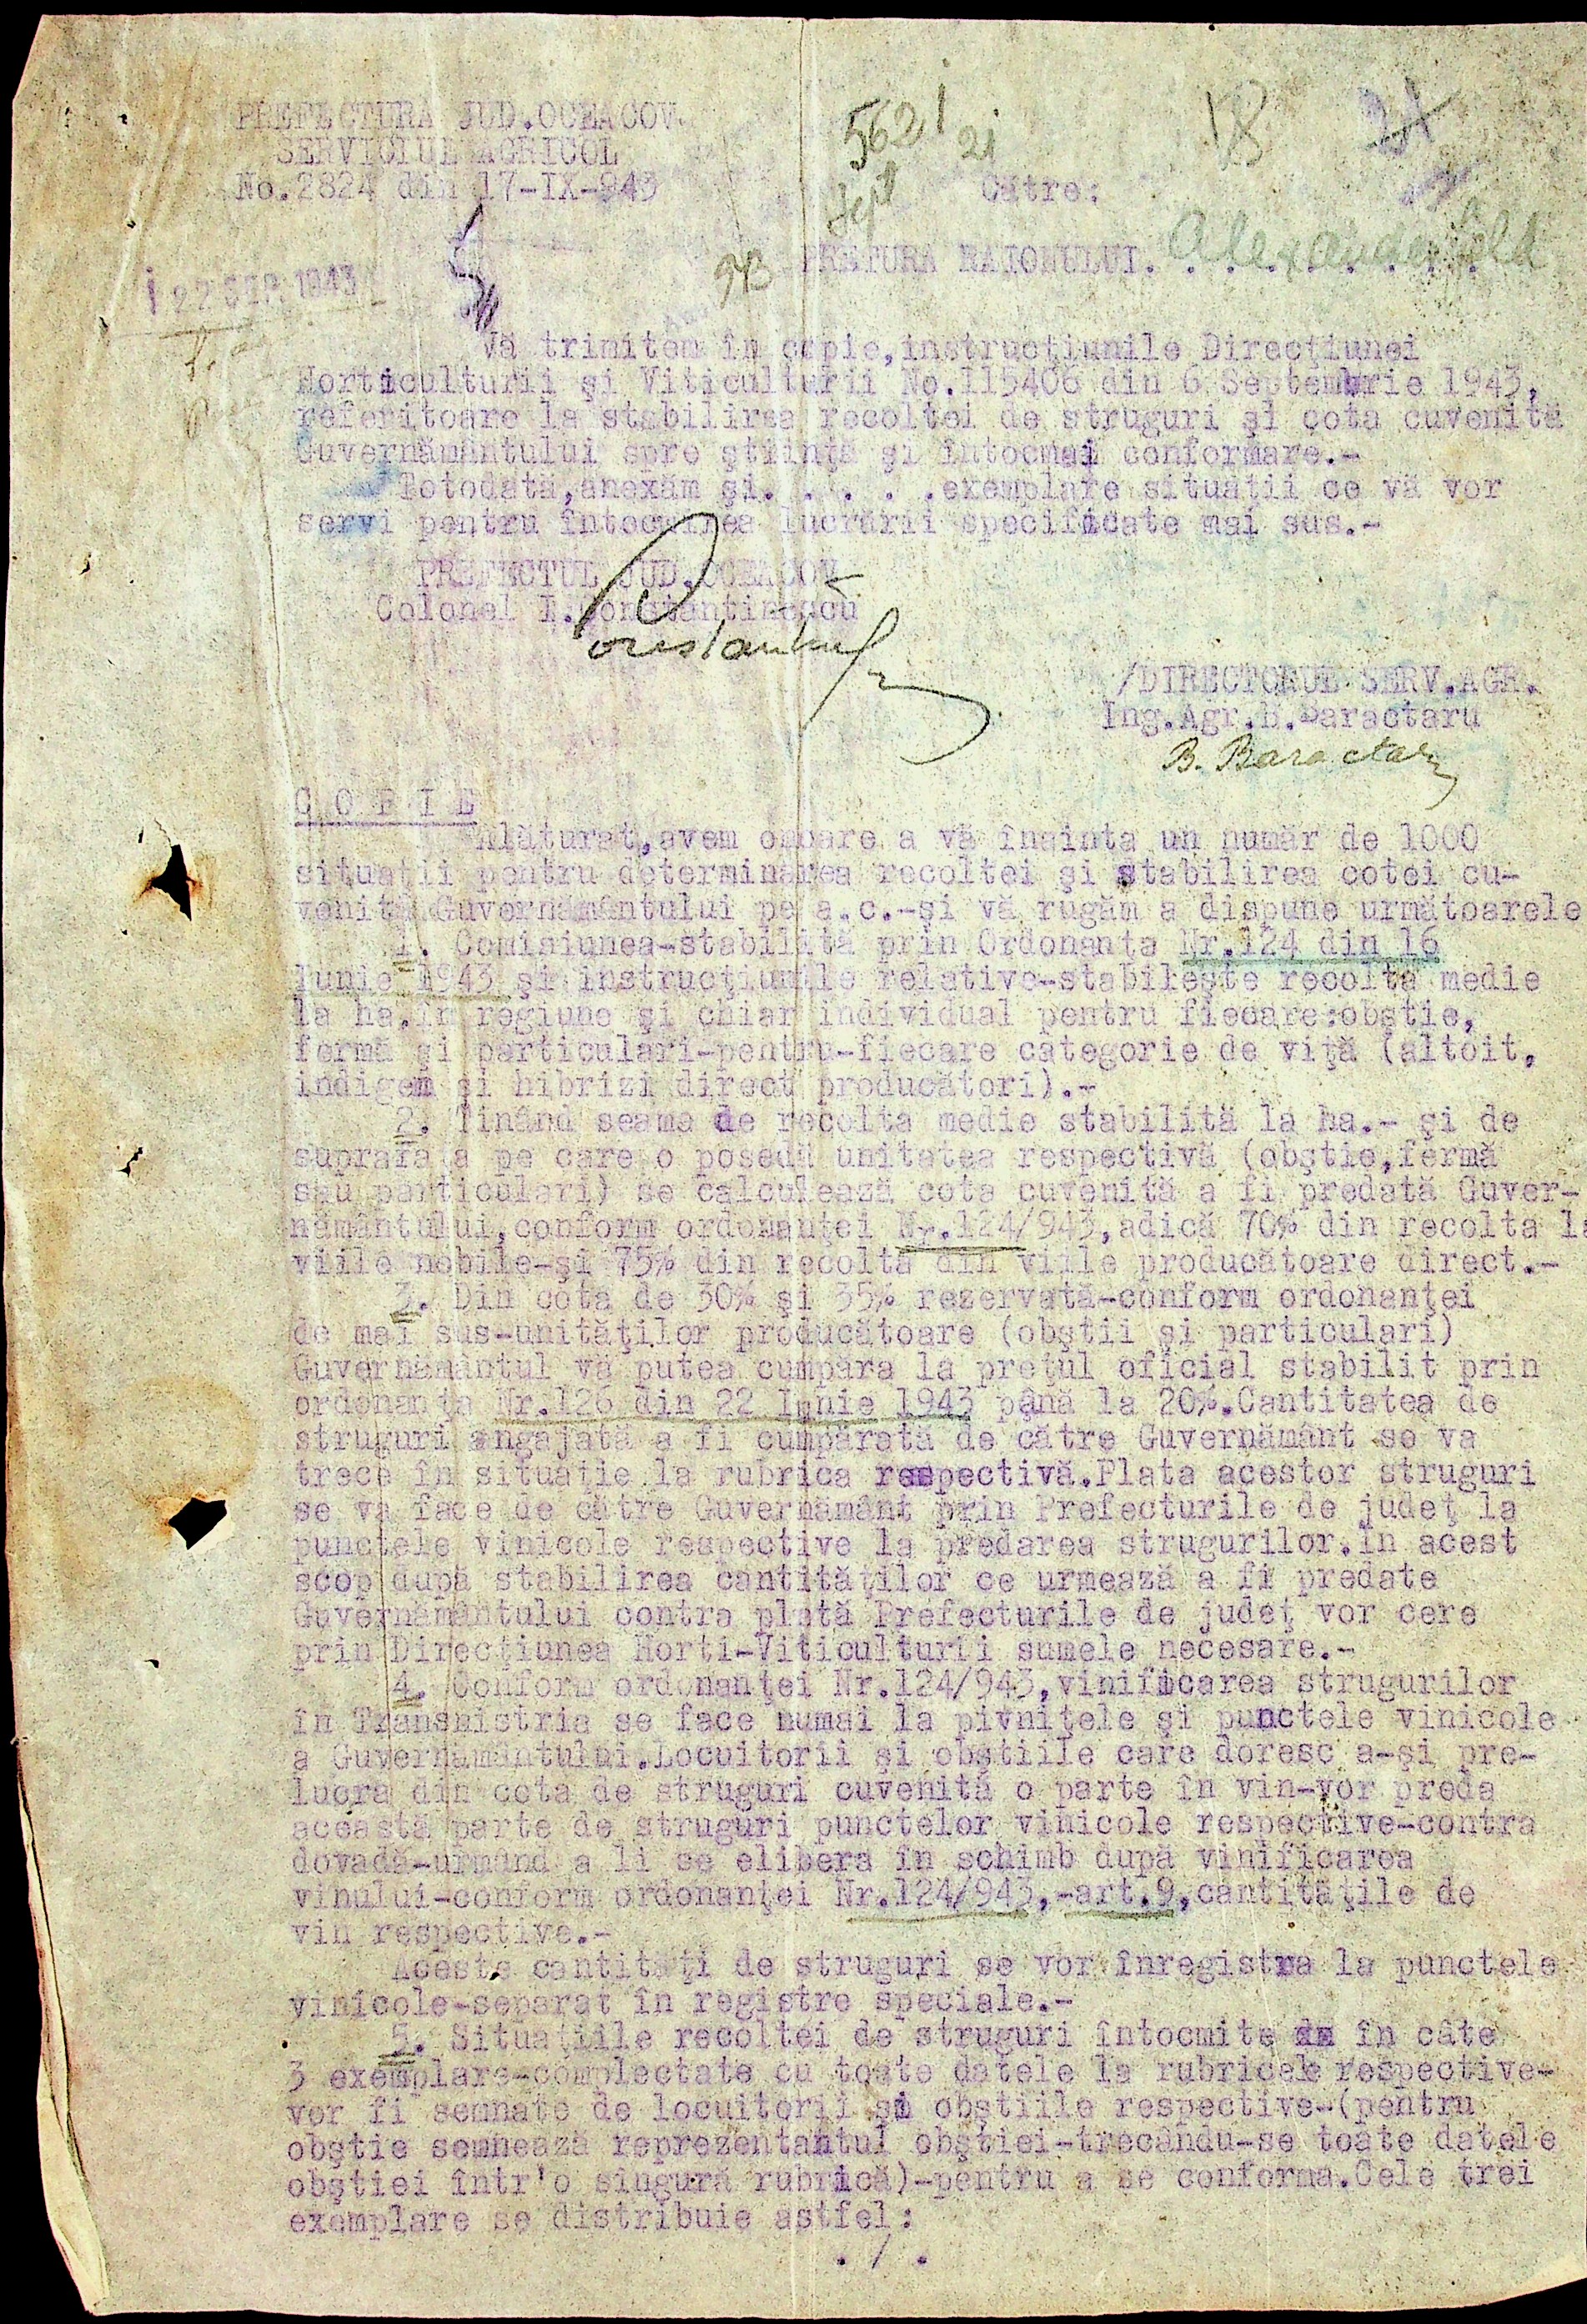 PREFECTURA JUD.OCEACOV.
SERVICIUL AGRICOL
No.2824 din 17-IX-943
5621
21
Sept
943
18
Către:
PRETURA RAIONULUI. Alexanderfeld
22 SEP. 1943
Vă trimitem în copie,instrucţiunile Direcţiunei
Horticulturii şi Viticulturii No.115406 din 6 Septembrie 1943,
referitoare la stabilirea recoltei de struguri şi cota cuvenită
Guvernământului spre ştiinţă şi întocmai conformare.-
Totodată,anexăm şi. . . . .exemplare situaţii ce vă vor
servi pentru întocmirea lucrării specificate mai sus.-
PREFECTUL JUD.OCEACOV
Colonel I.Constantinescu
/DIRECTORUL SERV.AGR.
Ing.Agr.B.Baractaru
B. Baractaru
C O P I E
Alăturat,avem onoare a vă înainta un număr de 1000
situaţii pentru determinarea recoltei şi stabilirea cotei cu-
venită Guvernământului pe a.c.-şi vă rugăm a dispune următoarele
1. Comisiunea-stabilită prin Ordonanţa Nr.124 din 16
Iunie 1943 şi instrucţiunile relative-stabileşte recolta medie
la ha.în regiune şi chiar individual pentru fiecare:obştie,
fermă şi particulari-pentru-fiecare categorie de viţă (altoit,
indigen şi hibrizi direct producători).-
2. Ţinând seama de recolta medie stabilită la ha.- şi de
suprafaţa pe care o posedă unitatea respectivă (obştie,fermă
sau particulari) se calculează cota cuvenită a fi predată Guver-
nământului,conform ordonanţei Nr.124/943,adică 70% din recolta la
viile nobile-şi 75% din recolta din viile producătoare direct.-
3. Din cota de 30% şi 35% rezervată-conform ordonanţei
de mai sus-unităţilor producătoare (obştii şi particulari)
Guvernământul va putea cumpăra la preţul oficial stabilit prin
ordonanţa Nr.126 din 22 Iunie 1943 până la 20%.Cantitatea de
struguri angajată a fi cumpărată de către Guvernământ se va
trece în situaţie la rubrica respectivă.Plata acestor struguri
se va face de către Guvernământ prin Prefecturile de judeţ la
punctele vinicole respective la predarea strugurilor.In acest
scop după stabilirea cantităţilor ce urmează a fi predate
Guvernământului contra plată Prefecturile de judeţ vor cere
prin Direcţiunea Horti-Viticulturii sumele necesare.-
4. Conform ordonanţei Nr.124/943,vinificarea strugurilor
în Transnistria se face numai la pivniţele şi punctele vinicole
a Guvernământului.Locuitorii şi obştiile care doresc a-şi pre-
lucra din cota de struguri cuvenită o parte în vin-vor preda
această parte de struguri punctelor vinicole respective-contra
dovadă-urmând a li se elibera în schimb după vinificarea
vinului-conform ordonanţei Nr.124/943,-art.9,cantităţile de
vin respective.-
Aceste cantităţi de struguri se vor înregistra la punctele
vinicole-separat în registre speciale.-
5. Situaţiile recoltei de struguri întocmite în câte
3 exemplare-complectate cu toate datele la rubricele respective-
vor fi semnate de locuitorii şi obştiile respective-(pentru
obştie semnează reprezentantul obştiei-trecându-se toate datele
obştiei într'o singură rubrică)-pentru a se conforma.Cele trei
exemplare se distribuie astfel:
. / .